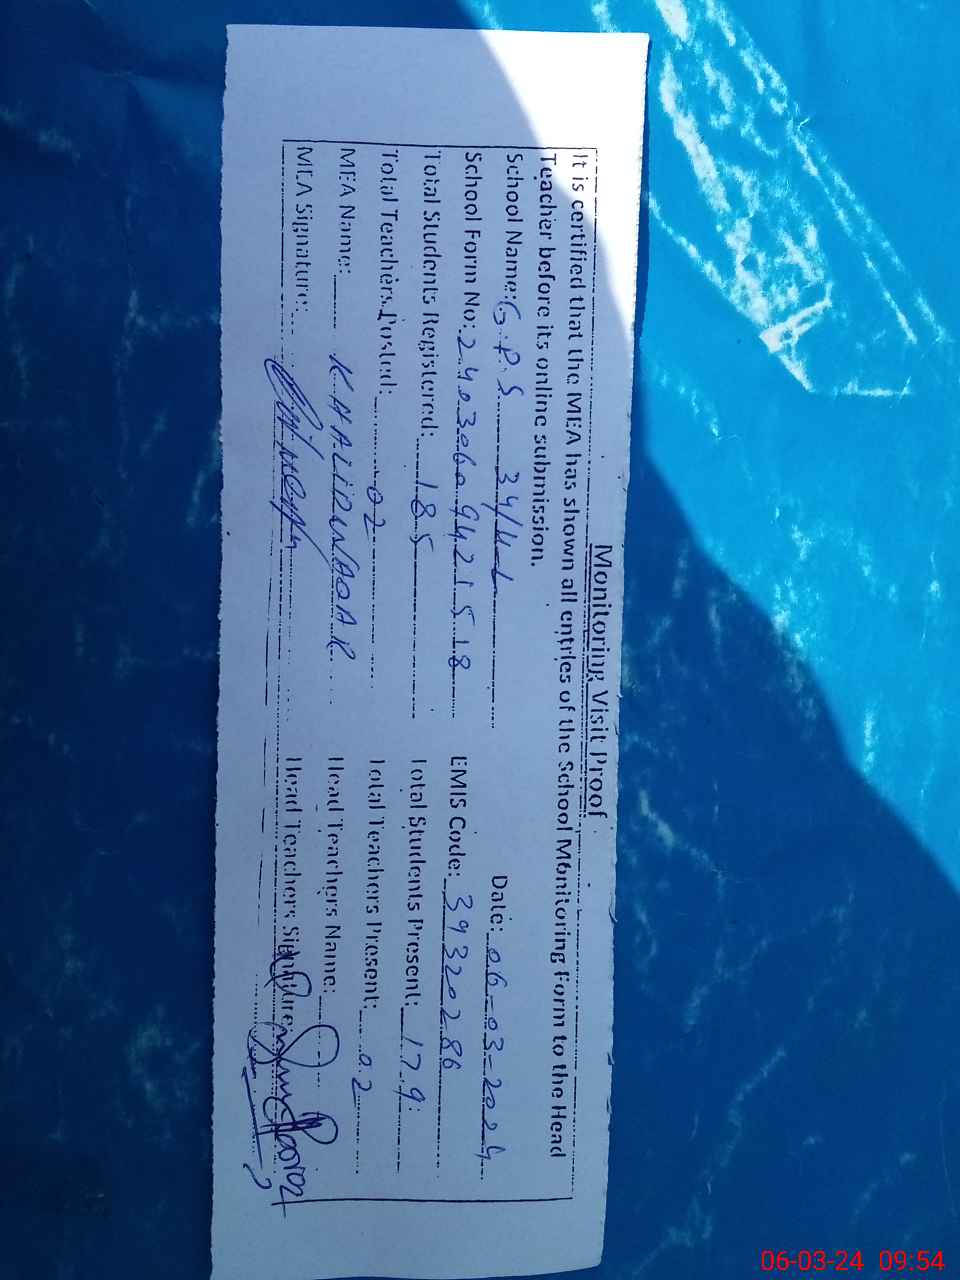 Monitoring Visit Proof
It is certified that the MEA has shown all entries of the School Monitoring Form to the Head
Teacher before its online submission.
Date: 06-03-2024
School Name: G.P.S 34/4-L
School Form No: 24030609421518 EMIS Code: 39320286
Total Students Registered: 185 Total Students Present: 179
Total Teachers Posted: 02 Total Teachers Present: 02
MEA Name: Head Teachers Name:
MEA Signature: Head Teachers Signature:
06-03-24 09:54